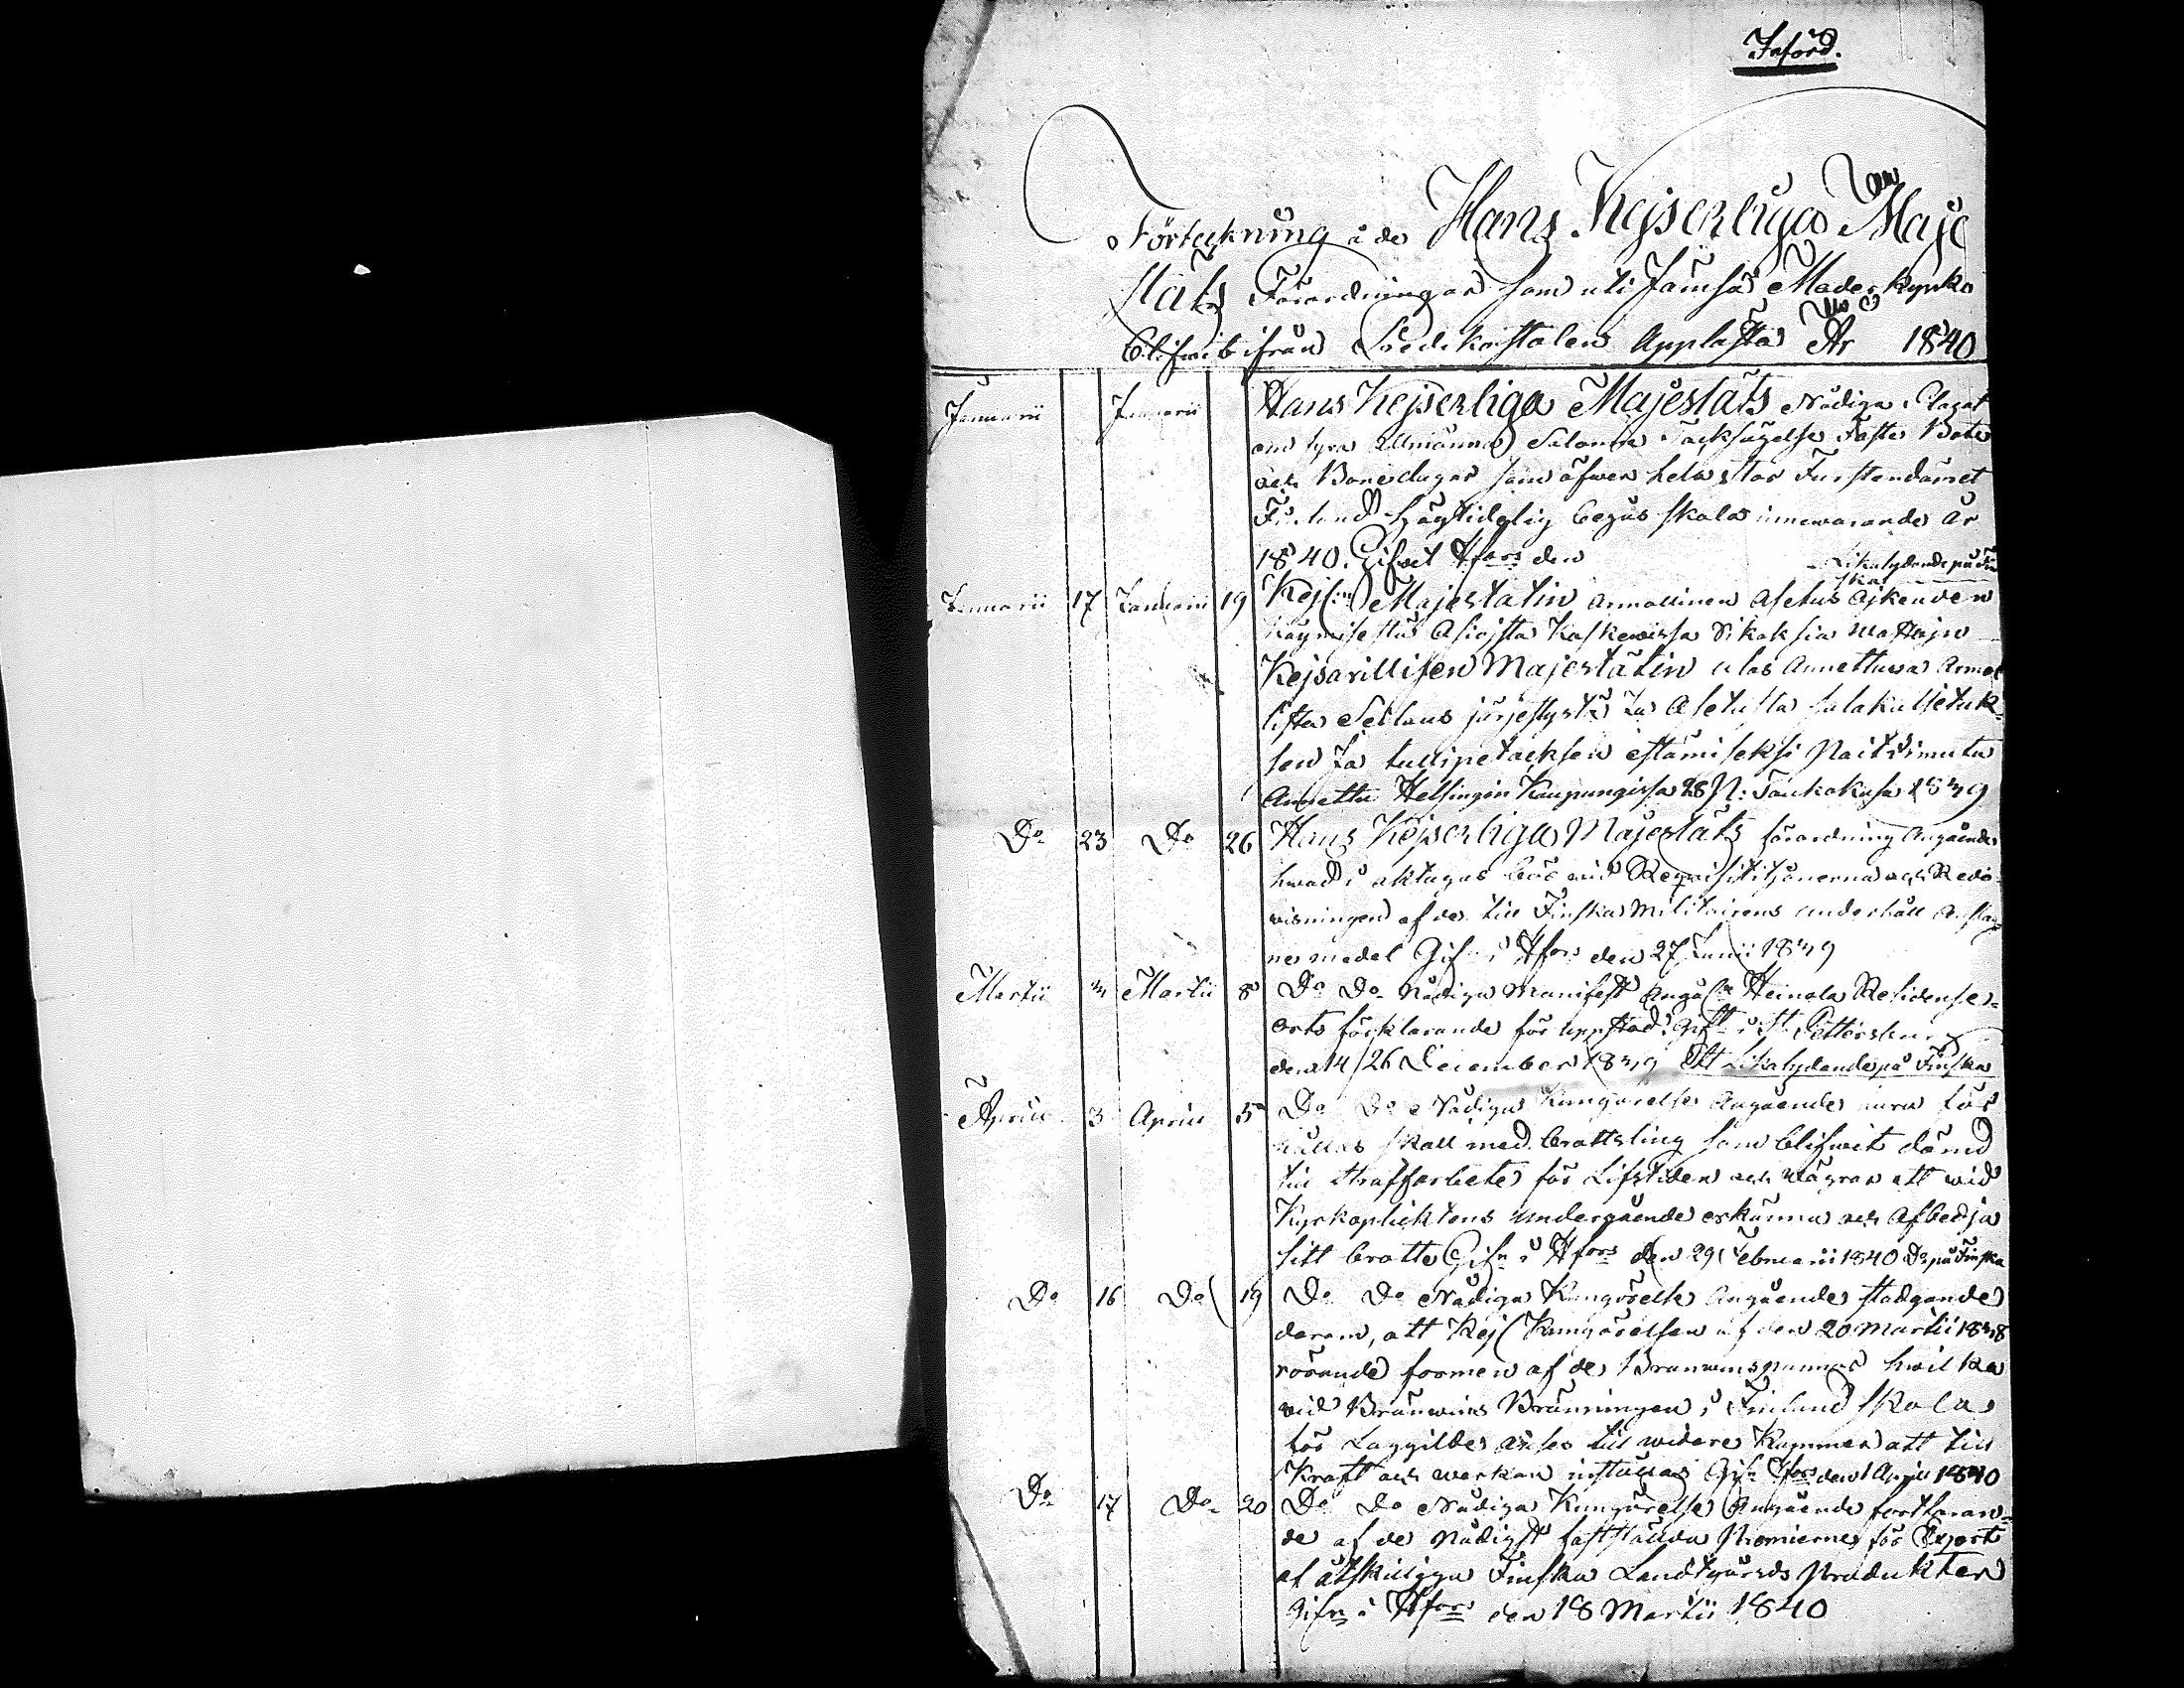 Införd.
Förteckning å de Hans Kejserliga Maje
stäts Förordningar som uti Jämsä Moderkyrka
blifwit ifrån Predikostolen Applästa År 1840
Januarii Januarii Hans Kejserliga Majestäts Nådiga Placat
om fyra Allmänna Solenna Tacksägelse Faste Bote
och Bönedagar som öfwer hela Stor Furstendömet
Finland högtidelig begås skola innewarande år
1840. Gifwet Hfors den Likalydande på Fin
ska
Januarii 17 Januarii 19 Kejs Majestätin Armollinen Asetus
Asioista
Kejsarillisen Majestätin ulos Annettuva Armol
lisen ja Asetusta salakulietuk
sen ja tullipetoksen estämiseksi
Annettu Helsingin Kaupungissa 28 P: Toukokusa 1839
Do 23 Do 26 Hans Kejserliga Majestäts förordning Angående
hwad i aktagas bör wid Reqvisitionerna och Redo
wisningen af de till Finska Militairens underhåll Anslag
ne medel Gifn i Hfors den 27 Junii 1839
Martii 3 Martii 8 Do Do Nådiga Manifest Angåe Heinola Residense
orts förklarande för uppstad. Gift i St. Pettersburg
den 14/26 December 1839 Ett Likalydande på Finska
Aprill 3 Aprill 5 Do Do Nådiga Kungörelse Angående huru för
hållas skall med brottsling som blifwit dömd
till straffarbete för Lifstiden och wägrar att wid
Kyrkoplichtens undergående erkänna och Afbedja
sitt brott Gifn i Hfors den 29 Februarii 1840 Do på Finska
Do 16 Do 19 Do Do Nådiga Kungörelse Angående stadgande
derom, att Kejs Kungörelsen af den 20 Martii 1838
rörande formen af de Bränwinspannor hwilka
wid Bränwins Bränningen i Finland skola
för Laggilde anses till widare kommer att till
Kraft och werkan inställas Gifn Hfors den 1 Aprill 1840
Do 17 Do 20 Do Do Nådiga Kungörelse Angående fortfaran
de af de Nådigst fastställda Premierne för Export
af åtskillige Finska Landtgårds Produkter
Gifn i Hfors den 18 Martii 1840